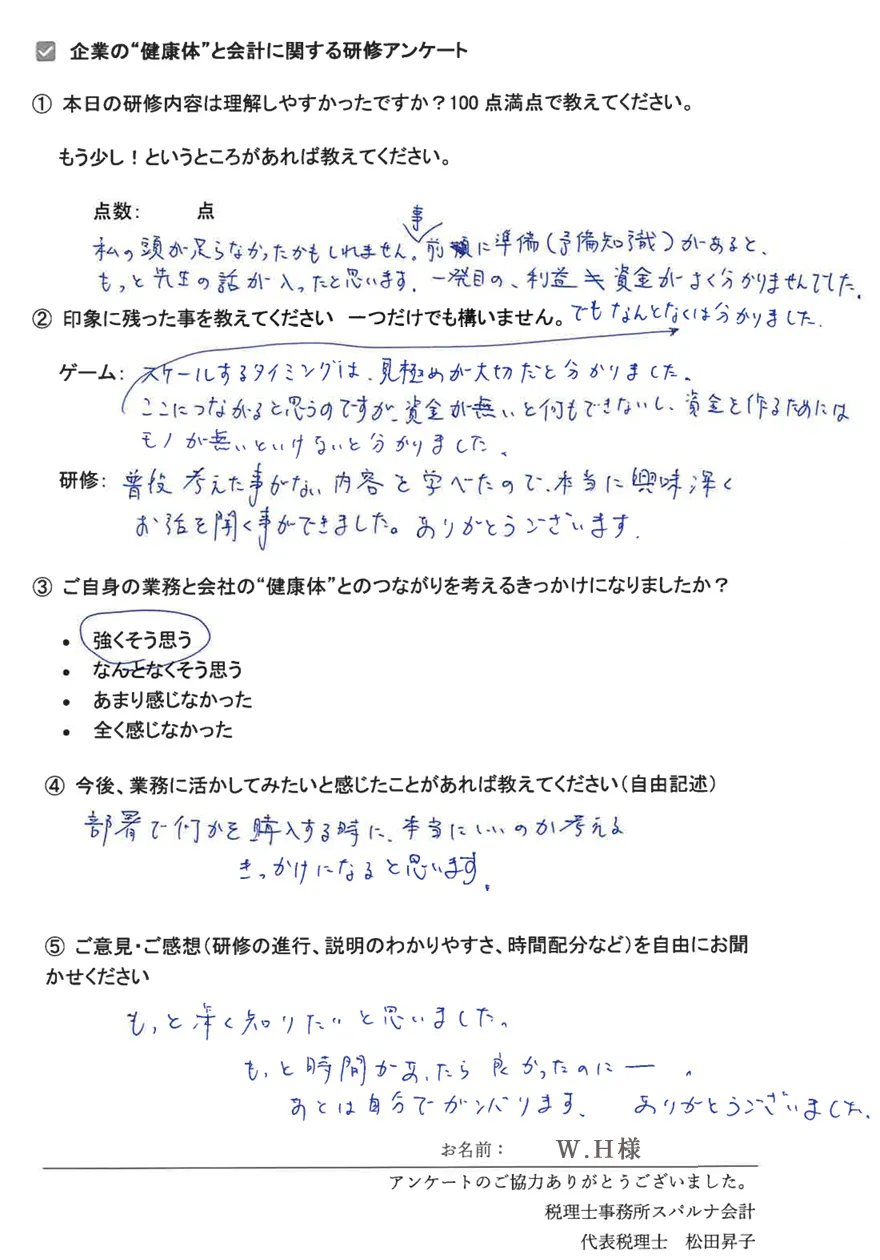 企業の“健康体”と会計に関する研修アンケート
① 本日の研修内容は理解しやすかったですか？100 点満点で教えてください。
もう少し！というところがあれば教えてください。
点数： 点
私の頭が足らなかったかもしれません。事前に準備(予備知識)があると、
もっと先生の話が入ったと思います。一発目の、利益≠資金がよく分かりませんでした。
② 印象に残った事を教えてください 一つだけでも構いません。
でもなんとなくは分かりました.
ゲーム： スケールするタイミングは、見極めが大切だと分かりました。
ここにつながると思うのですが、資金が無いと何もできないし、資金を作るためには
モノが無いといけないと分かりました。
研修： 普段考えた事がない内容を学べたので、本当に興味深く
お話を聞く事ができました。ありがとうございます.
③ ご自身の業務と会社の“健康体”とのつながりを考えるきっかけになりましたか？
• 強くそう思う
• なんとなくそう思う
• あまり感じなかった
• 全く感じなかった
④ 今後、業務に活かしてみたいと感じたことがあれば教えてください（自由記述）
部署で何かを購入する時に、本当にいいのか考える
きっかけになると思います。
⑤ ご意見・ご感想（研修の進行、説明のわかりやすさ、時間配分など）を自由にお聞
かせください
もっと深く知りたいと思いました。
もっと時間があったら良かったのにー。
あとは自分でガンバります. ありがとうございました.
お名前： W.H様
アンケートのご協力ありがとうございました。
税理士事務所スパルナ会計
代表税理士 松田昇子